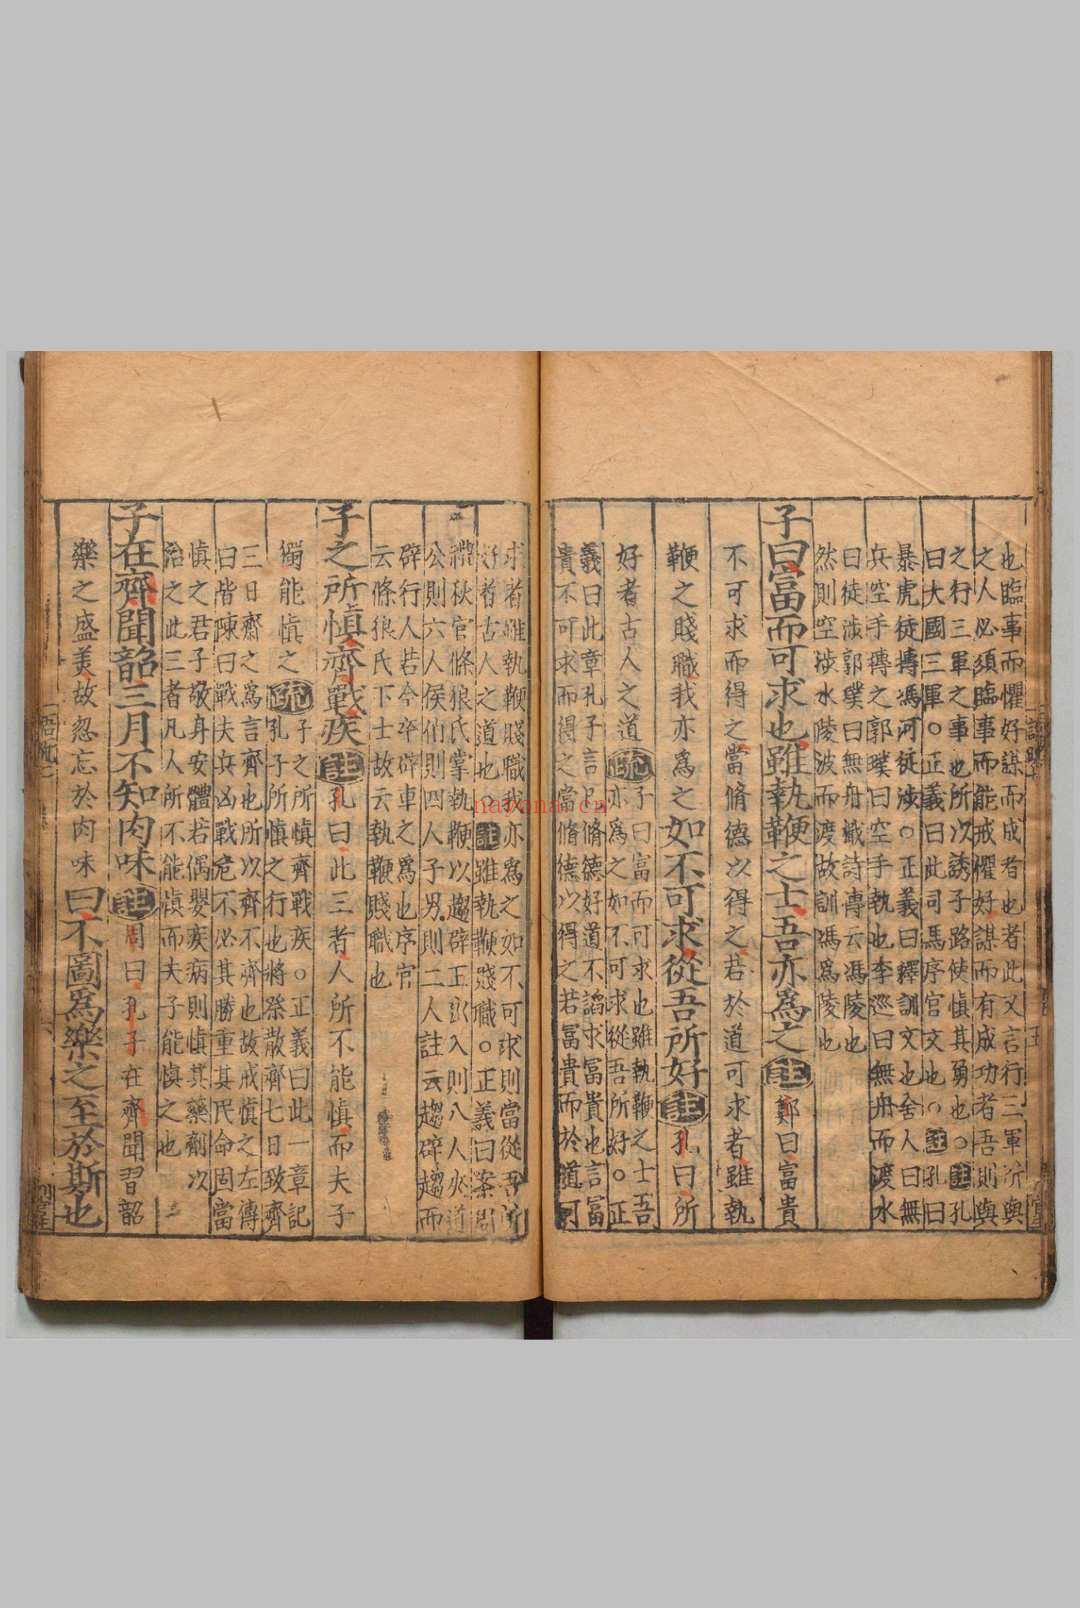 也臨事而懼好謀而成者也者此又言行三軍所與
之人必須臨事而能戒懼好謀而有成功者吾則與
之行三軍之事也所以誘子路使慎其勇也○註孔
曰大國三軍○正義曰此司馬序官文也○註孔曰
暴虎徒搏馮河徒涉○正義曰釋訓文也舍人曰無
兵空手搏之郭璞曰空手執也李巡曰無舟而渡水
曰徒涉郭璞曰無舟檝詩傳云馮陵也
然則空涉水陵波而渡故訓馮為陵也
子曰富而可求也雖執鞭之士吾亦為之註鄭曰富貴
不可求而得之當脩德以得之若於道可求者雖執
鞭之賤職我亦為之如不可求從吾所好註孔曰所
好者古人之道疏子曰富而可求也雖執鞭之士吾
亦為之如不可求從吾所好○正
義曰此章孔子言己脩德好道不諂求富貴也言富
貴不可求而得之當脩德以得之若富貴而於道可
求者雖執鞭賤職我亦為之如不可求則當從吾所
好者古人之道也○註雖執鞭賤職○正義曰案周
禮秋官條狼氏掌執鞭以趨辟王出入則八人夾道
公則六人侯伯則四人子男則二人註云趨辟趨而
辟行人若今卒辟車之為也序官
云條狼氏下士故云執鞭賤職也
子之所慎齊戰疾註孔曰此三者人所不能慎而夫子
獨能慎之疏子之所慎齊戰疾○正義曰此一章記
孔子所慎之行也將祭散齊七日致齊
三日齊之為言齊也所以齊不齊也故戒慎之左傳
曰皆陳曰戰夫兵凶戰危不必其勝重其民命固當
慎之君子敬身安體若偶嬰疾病則慎其藥劑以
治之此三者凡人所不能慎而夫子能慎之也
子在齊聞韶三月不知肉味註周曰孔子在齊聞習韶
樂之盛美故忽忘於肉味曰不圖為樂之至於斯也
naixona.cn